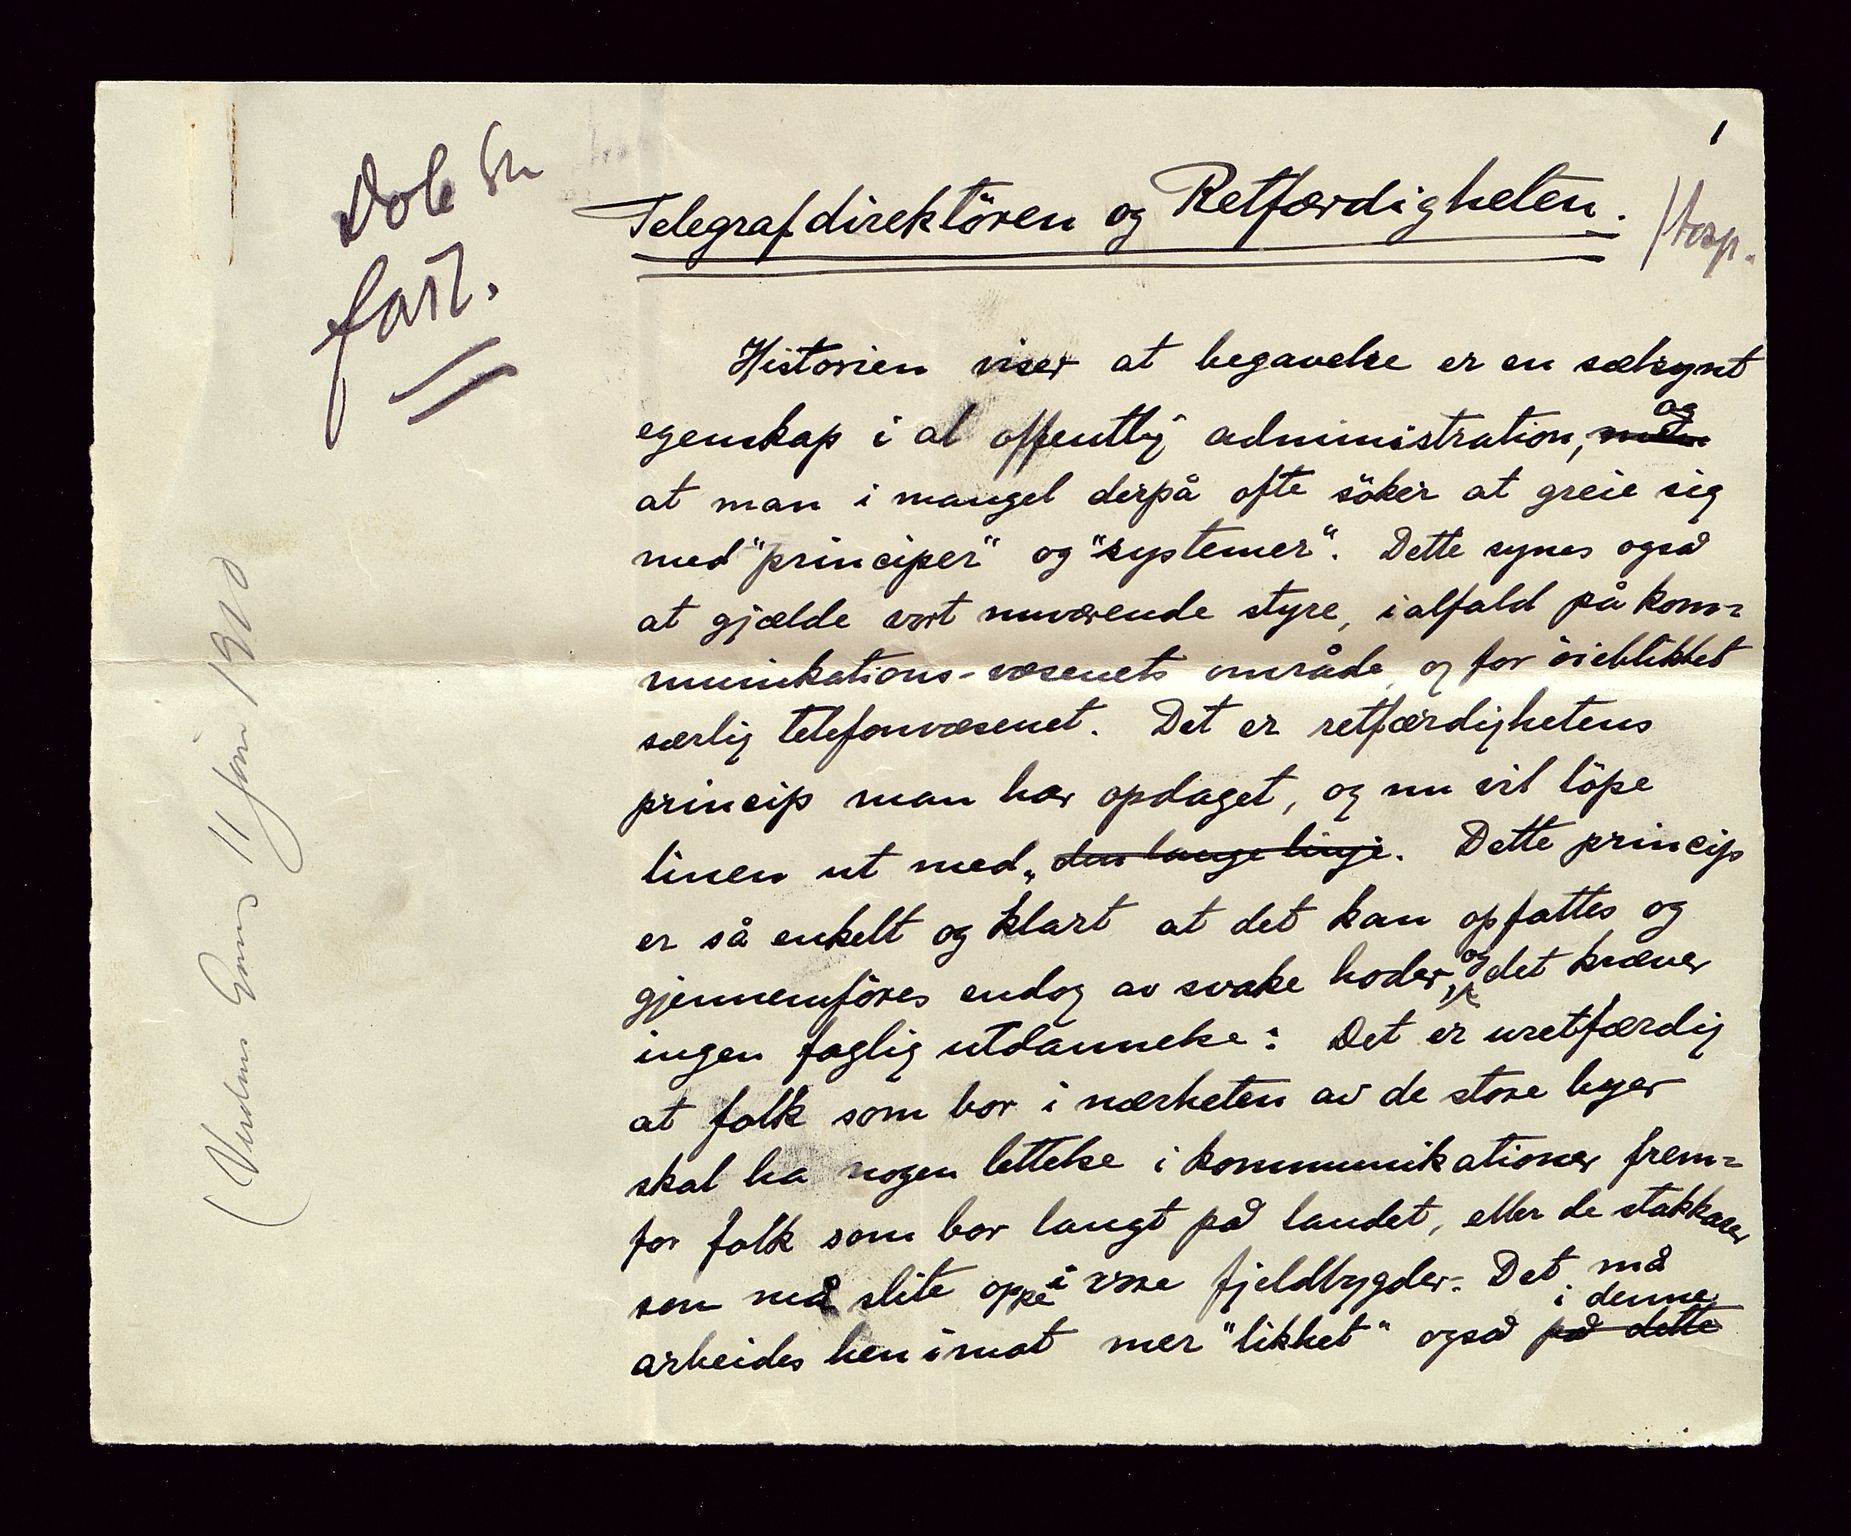 1
Telegrafdirektören og Retfærdigheten.
fart.
Historien viser at begavelse er en sælsynt
egenskap i al offentlig administration, og
at man i mangel derpå ofte söker at greie sig
med "principer" og "systemer". Dette synes også
at gjælde vort nuværende styre, ialfald på kom=
munikations-væsenets område, og for öieblikket
særlig telefonvæsenet. Det er retfærdighetens
princip man har opdaget, og nu vil löpe
linen ut med. den lange linje. Dette princip
er så enkelt og klart at det kan opfattes og
gjennemföres endog av svake hoder, og det kræver
ingen faglig utdannelse: Det er uretfærdig
at folk som bor i nærheten av de store byer
skal ha nogen lettelse i kommunikationer frem=
for folk som bor langt på landet, eller de stakkarer
som må slite oppe i vore fjeldbygder. Det må
arbeides hen imot mer "likhet" også på dette i denne
(Verdens Gang 11 juni 1910